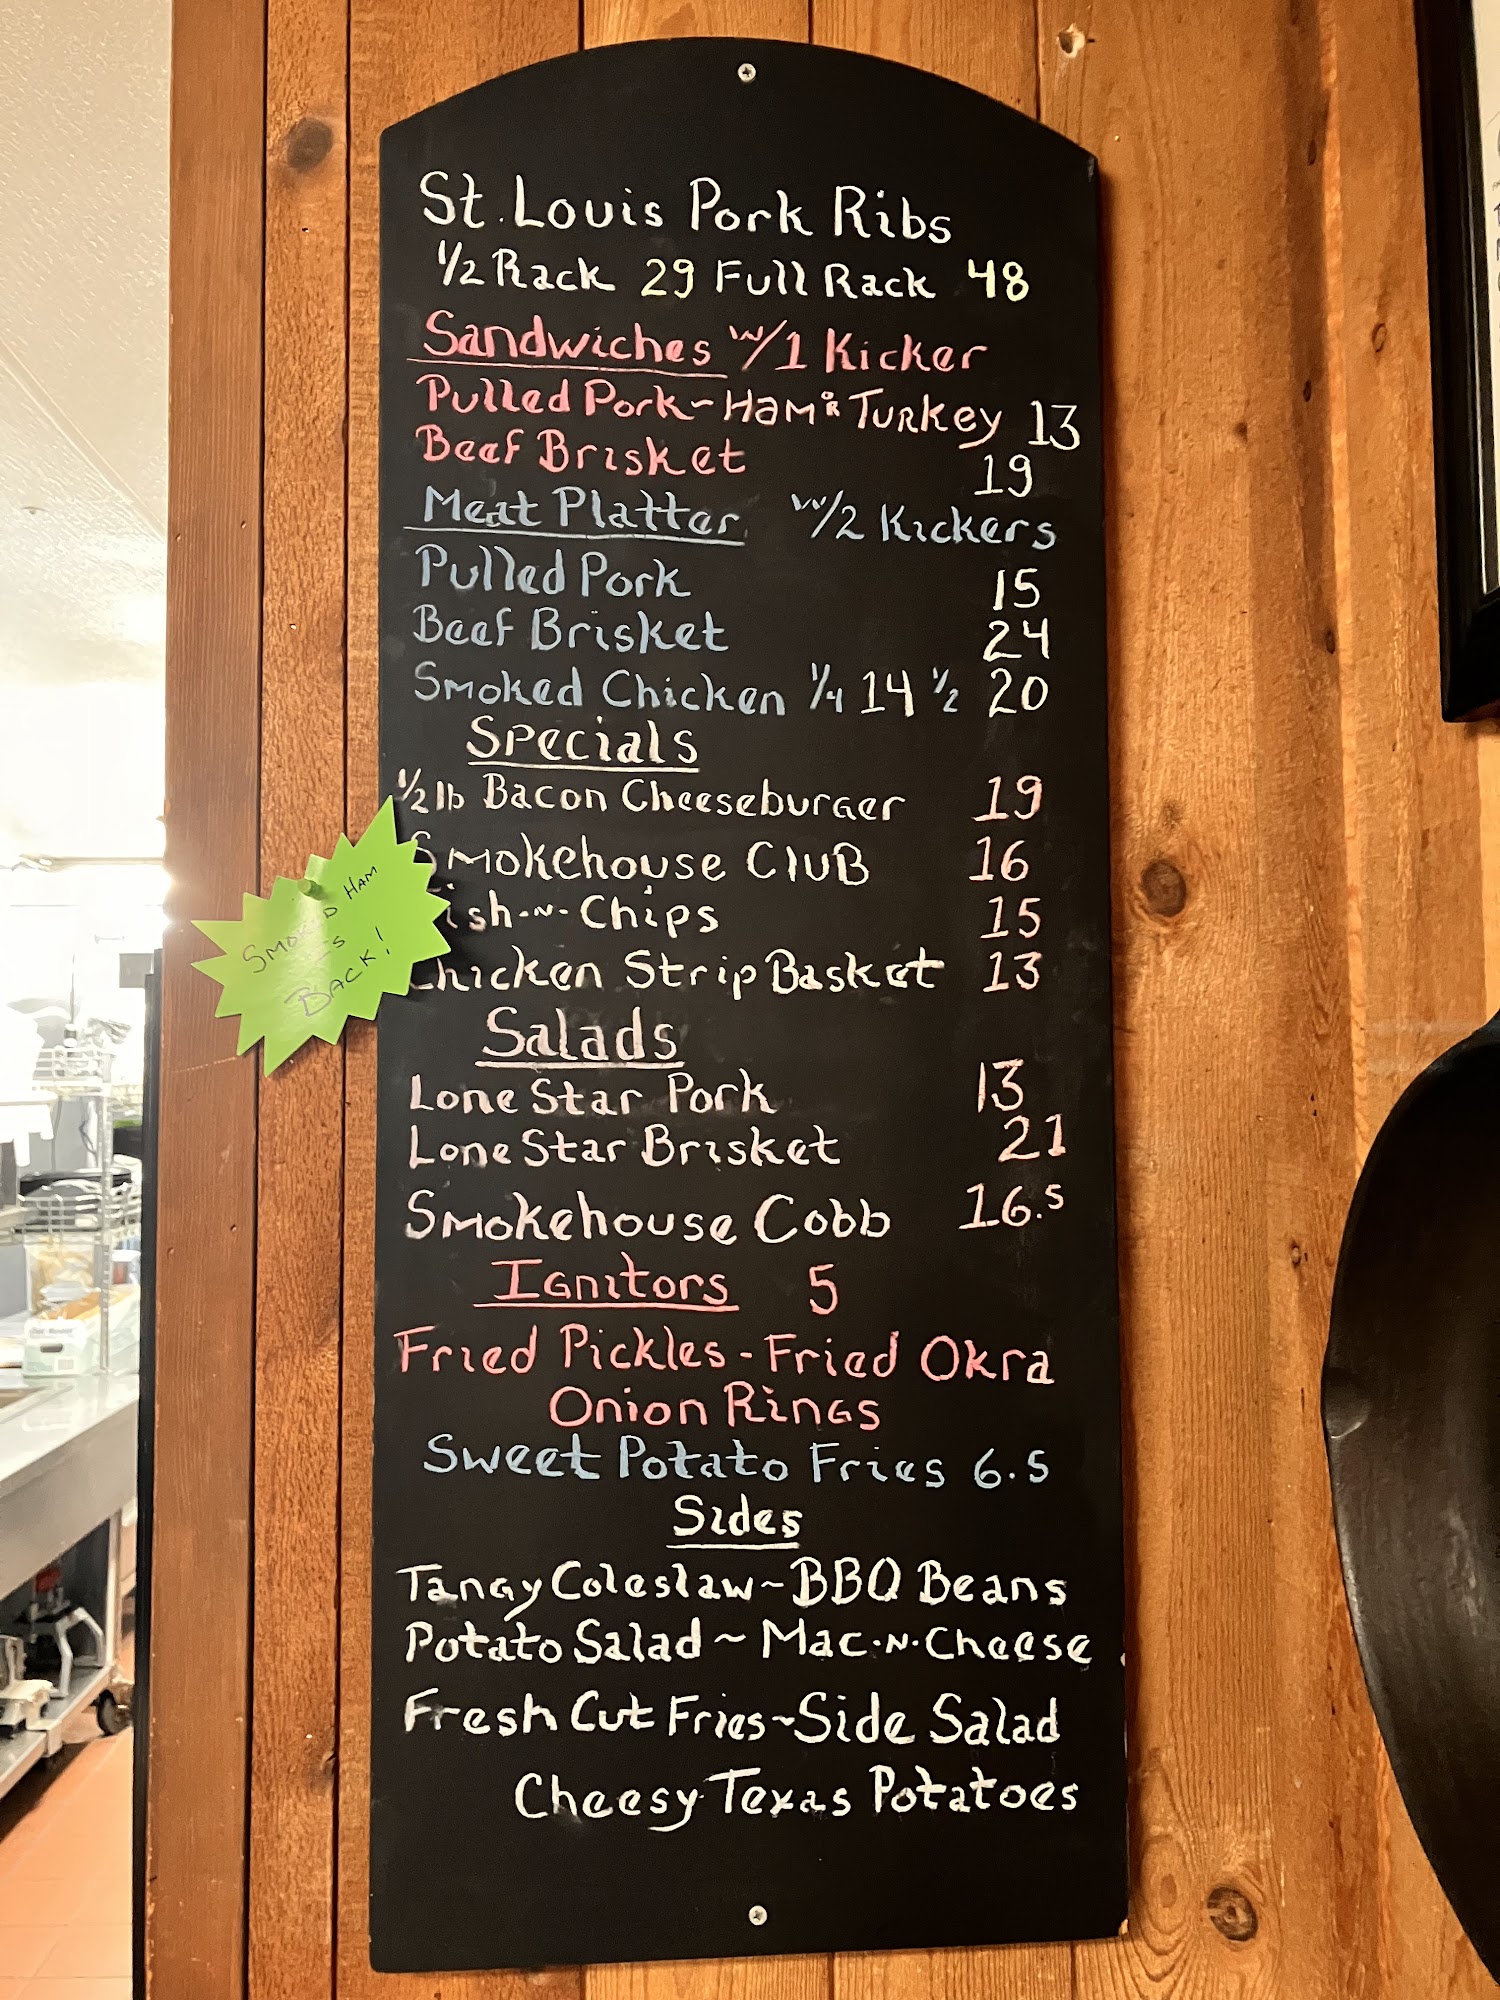 St. Louis Pork Ribs
1/2 Rack 29 Full Rack 48
Sandwiches w/1 Kicker
Pulled Pork~Ham OR Turkey 13
Beef Brisket 19
Meat Platter w/2 Kickers
Pulled Pork 15
Beef Brisket 24
Smoked Chicken 1/4 14 1/2 20
Specials
1/2 lb Bacon Cheeseburger 19
Smokehouse Club 16
ish-N-Chips 15
Chicken Strip Basket 13
Salads
Lone Star Pork 13
Lone Star Brisket 21
Smokehouse Cobb 16.5
Ignitors 5
Fried Pickles - Fried Okra
Onion Rings
Sweet Potato Fries 6.5
Sides
Tangy Coleslaw~BBQ Beans
Potato Salad~Mac-N-Cheese
Fresh Cut Fries~Side Salad
Cheesy Texas Potatoes
Smoked Ham
is
Back!